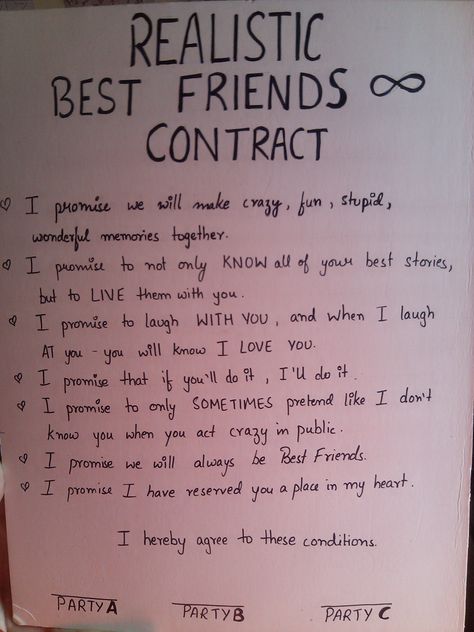 REALISTIC
BEST FRIENDS ∞
CONTRACT
♡ I promise we will make crazy, fun, stupid,
wonderful memories together.
♡ I promise to not only KNOW all of your best stories,
but to LIVE them with you.
♡ I promise to laugh WITH YOU, and when I laugh
AT you - you will know I LOVE YOU.
♡ I promise that if you'll do it, I'll do it.
♡ I promise to only SOMETIMES pretend like I don't
know you when you act crazy in public.
♡ I promise we will always be Best Friends.
♡ I promise I have reserved you a place in my heart.
I hereby agree to these conditions.
PARTY A PARTY B PARTY C